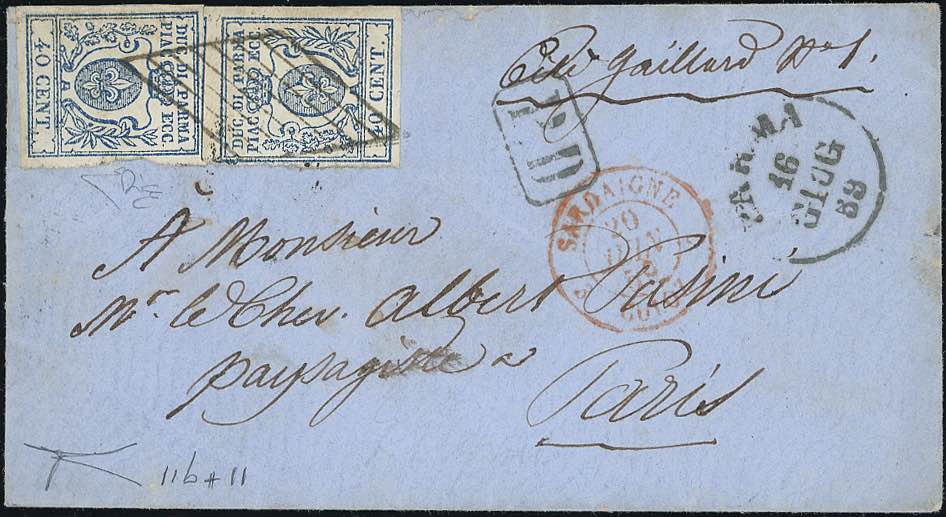 40 CENT.
DUC. DI PARMA
PIAC. ECC.
40 CENT.
DUC. DI PARMA
PIAC. ECC.
Cité Gaillard No 1.
P.D
PARMA
16
GIUG
59
SARDAIGNE
20
JUIN
A Monsieur
Mr. le Chev. Albert Pasini
paysagiste
Paris
11b+11